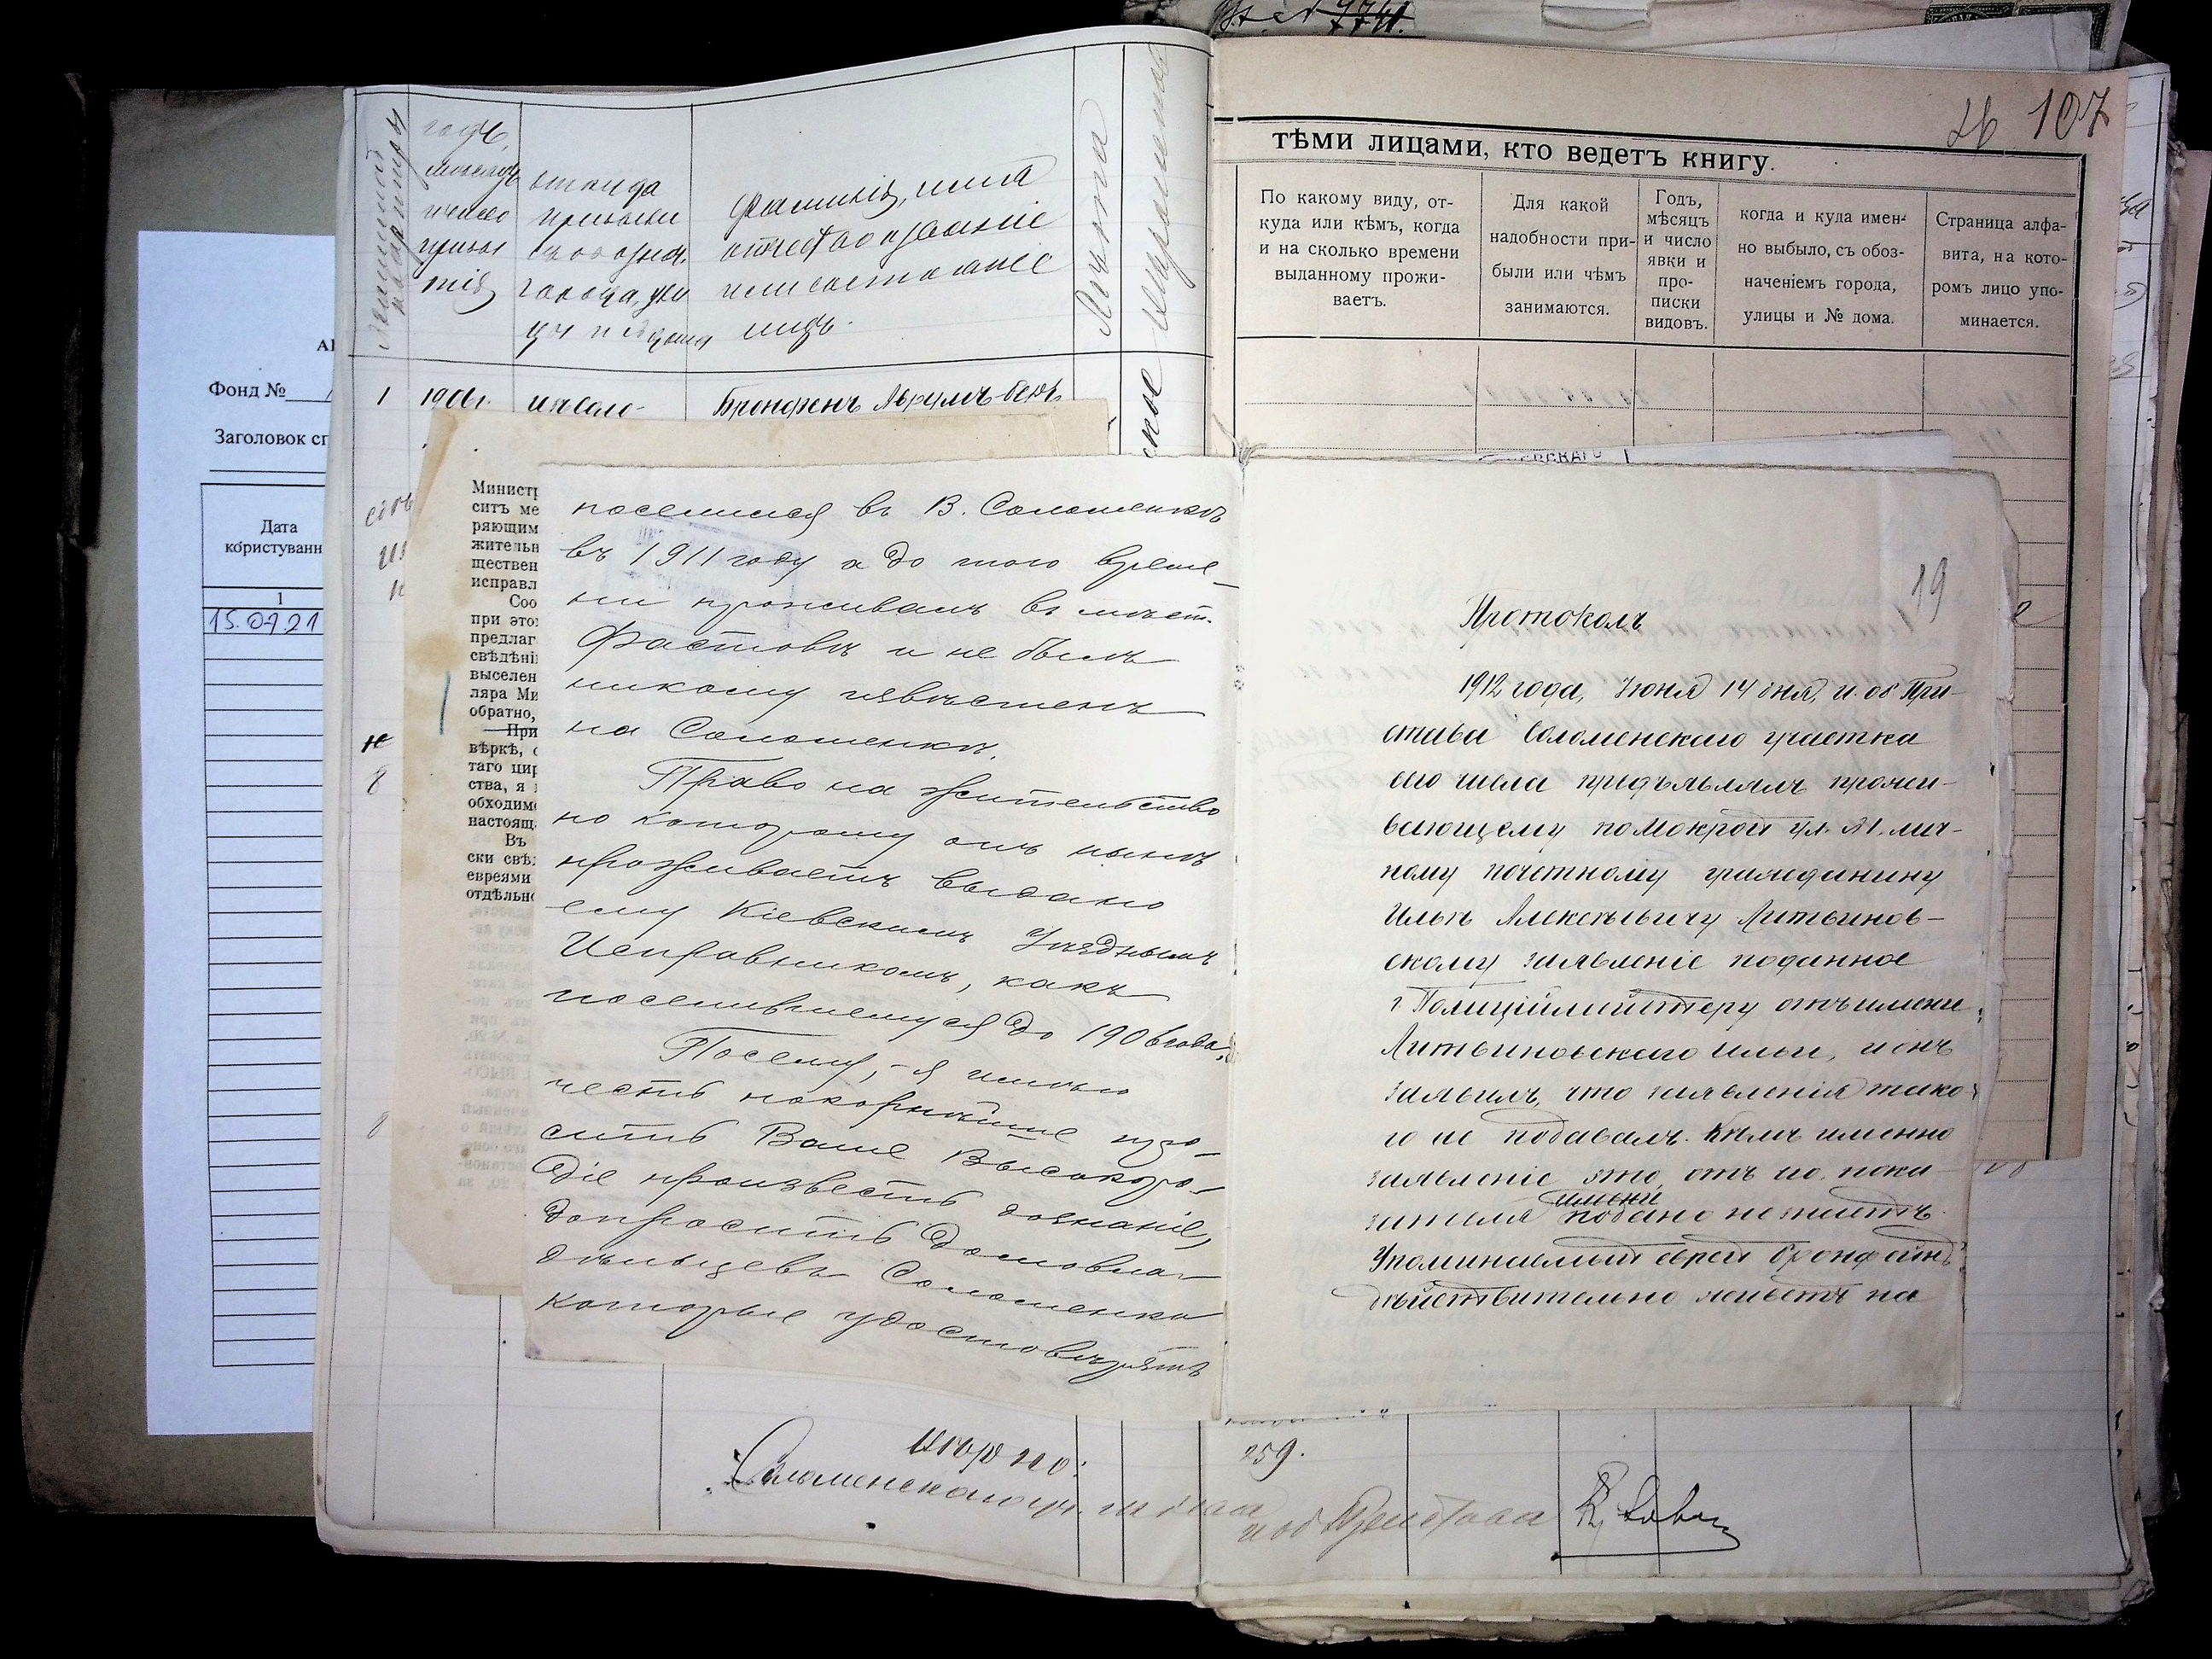 107
тѣми лицами, кто ведетъ книгу.
По какому виду, от-
куда или кѣмъ, когда
и на сколько времени
выданному прожи-
ваетъ.
Для какой
надобности при-
были или чѣмъ
занимаются.
Годъ,
мѣсяцъ
и число
явки и
про-
писки
видовъ.
когда и куда имен-
но выбыло, съ обоз-
наченіемъ города,
улицы и № дома.
Страница алфа-
вита, на кото-
ромъ лицо упо-
минается.
годъ,
мѣсяцъ
и число
прибы
тія
откуда
прибыли
города, ули
цы и № дома
Фамилія, имя
отчество и званіе
или состояніе
лицъ.
1
1906г.
Бронфенъ Аврумъ-Берь
Фонд №
Заголовок
Дата
користуванн
1
15.09.21
Минист
ситъ ме
ряющим
жительн
ществен
исправл
Соо
при это
предлаг
свѣдѣні
выселен
ляра Ми
обратно,
При
вѣркѣ, с
таго цир
ства, я
обходим
настоящ
Въ
ски свѣ
евреями
отдѣльн
поселился въ В. Соломенкѣ
въ 1911 году а до того време-
ни проживалъ въ мѣст.
Фастовѣ и не былъ
никому извѣстенъ
на Соломенкѣ.
Право на жительство
по которому онъ нынѣ
проживаетъ выдано
ему Кіевскимъ Уѣзднымъ
Исправникомъ, какъ
поселившемуся до 1906 года.
Посему, я имѣю
честь покорнѣйше про-
сить Ваше Высокоро-
діе произвесть дознаніе,
допросить домовла-
дѣльцевъ Соломенки
которые удостовѣрятъ
19
Протоколъ
1912 года, Іюня 14 дня, и. об При-
става Соломенскаго участка
сего числа предъявлялъ прожи-
вающему по Мокрой ул. лич-
ному почетному гражданину
Ильѣ Алексѣевичу Литвинов-
скому заявленіе поданное
г Полиціймейстеру отъ имени
Литвиновскаго Ильи, и онъ
заявилъ, что заявленія тако-
го не подавалъ. Кѣмъ именно
заявленіе это отъ его пока
зителя имени подано не знаетъ.
Упоминаемый еврей Бронфейнъ
дѣйствительно живетъ на
259.
Соломенскаго уч.